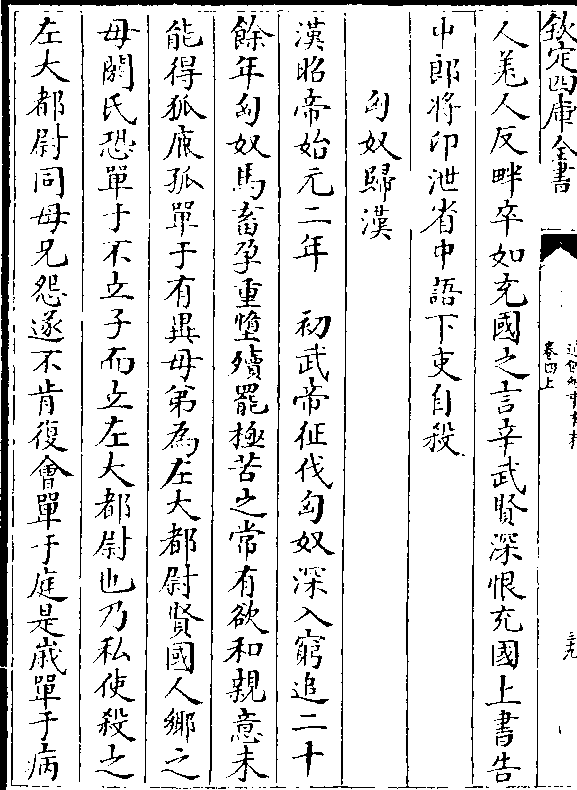 欽定四庫全書
卷四上
人羌人反畔卒如充國之言辛武賢深恨充國上書告
中郎將卬泄省中語下吏自殺
匈奴歸漢
漢昭帝始元二年　初武帝征伐匈奴深入窮追二十
餘年匈奴馬畜孕重墮殰罷極苦之常有欲和親意未
能得狐鹿孤單于有異母弟為左大都尉賢國人鄉之
母閼氏恐單于不立子而立左大都尉也乃私使殺之
左大都尉同母兄怨遂不肯復會單于庭是嵗單于病